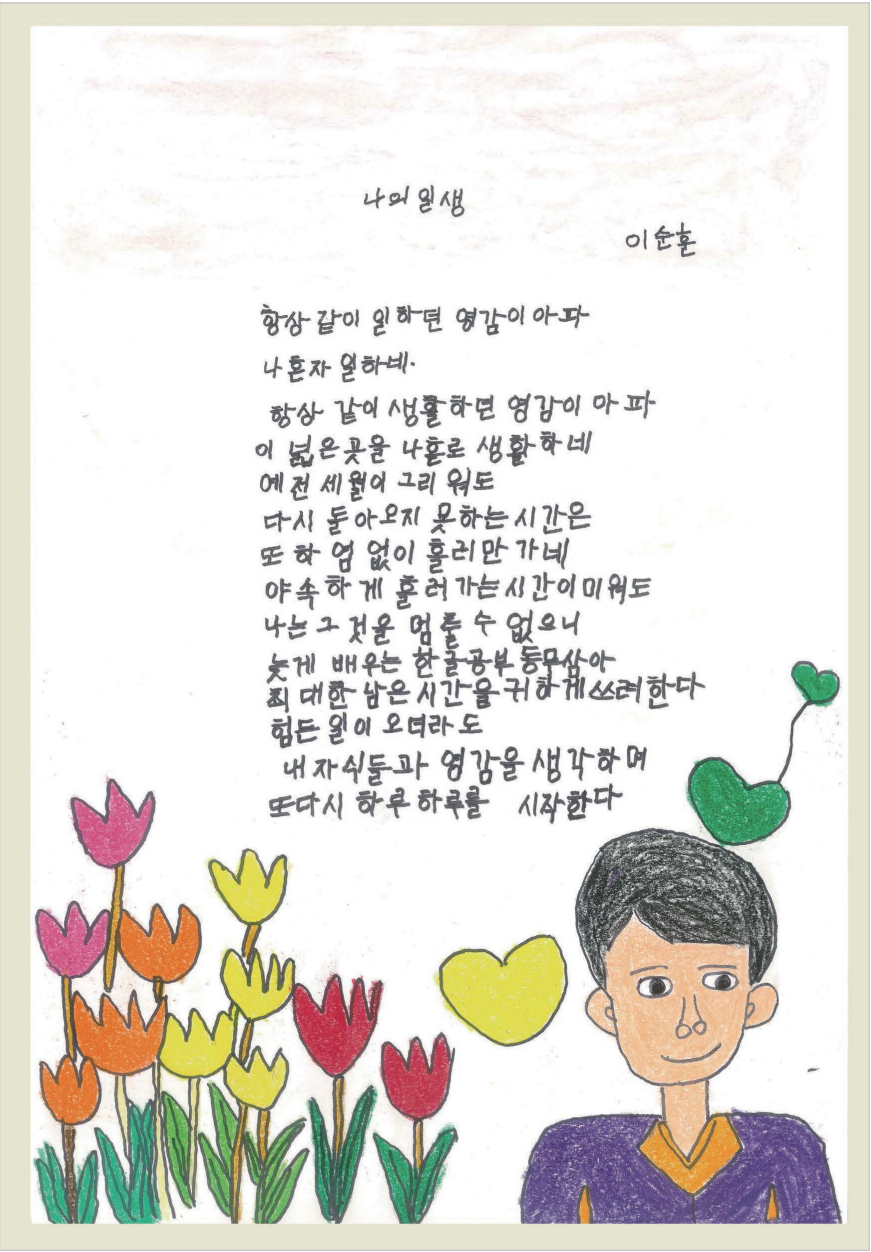 나의 일생
이순훈
항상 같이 일하던 영감이 아파
나 혼자 일하네.
항상 같이 생활하던 영감이 아파
이 넓은 곳을 나홀로 생활하네
예전 세월이 그리워도
다시 돌아오지 못하는 시간은
또 하염없이 흘러만 가네
야속하게 흘러가는 시간이 미워도
나는 그것을 멈출 수 없으니
늦게 배우는 한글공부 동무삼아
최대한 남은 시간을 귀하게 쓰려한다
힘든 일이 오더라도
내 자식들과 영감을 생각하며
또다시 하루하루를 시작한다